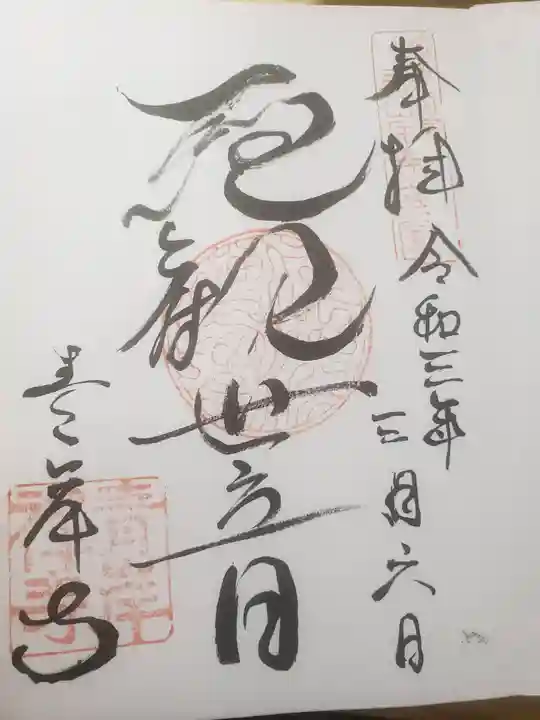 奉拝 令和三年
三月六日
観世音
青岸寺